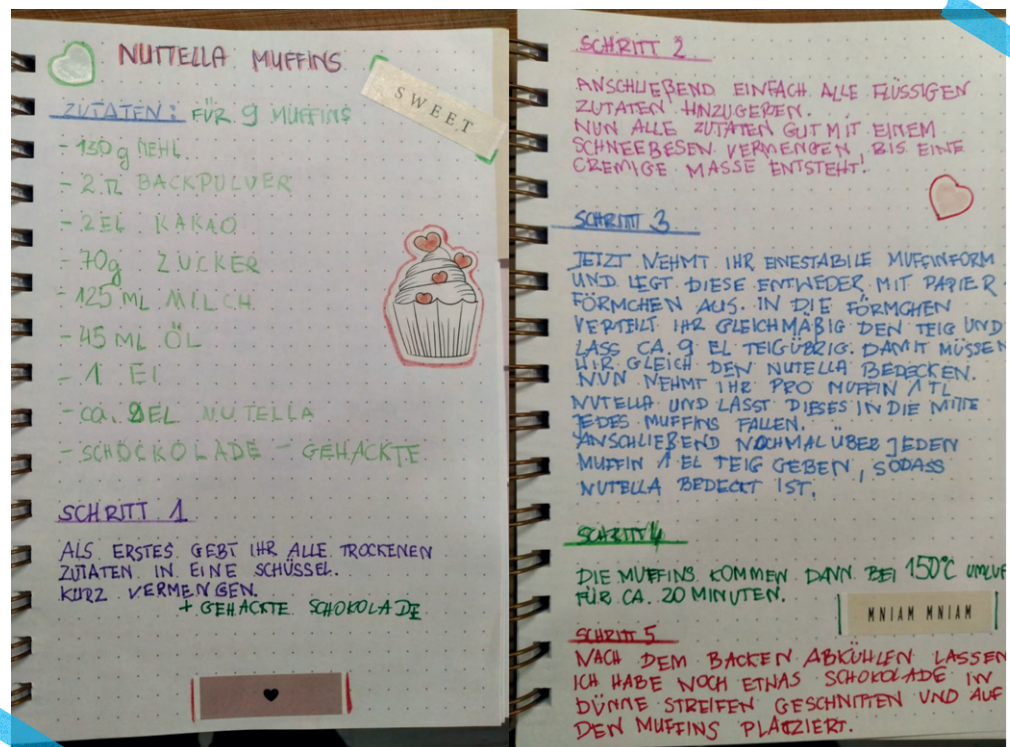 NUTTELLA MUFFINS
SWEET
ZUTATEN: FÜR 9 MUFFINS
- 130 g MEHL
- 2 TL BACKPULVER
- 2 EL KAKAO
- 70g ZUCKER
- 125 ML MILCH
- 45 ML ÖL
- 1 EI
- CA. EL NUTELLA
- SCHOCKOLADE - GEHACKTE
SCHRITT 1
ALS ERSTES GEBT IHR ALLE TROCKENEN
ZUTATEN IN EINE SCHÜSSEL.
KURZ VERMENGEN.
+ GEHACKTE SCHOKOLADE
SCHRITT 2
ANSCHLIEßEND EINFACH ALLE FLÜSSIGEN
ZUTATEN HINZUGEBEN.
NUN ALLE ZUTATEN GUT MIT EINEM
SCHNEEBESEN VERMENGEN BIS EINE
CREMIGE MASSE ENTSTEHT!
SCHRITT 3
JETZT NEHMT IHR EINE STABILE MUFFINFORM
UND LEGT DIESE ENTWEDER MIT PAPIER
FÖRMCHEN AUS. IN DIE FÖRMCHEN
VERTEILT IHR GLEICHMÄßIG DEN TEIG UND
LASS CA. 9 EL TEIG ÜBRIG. DAMIT MÜSSEN
WIR GLEICH DEN NUTELLA BEDECKEN.
NUN NEHMT IHR PRO MUFFIN 1 TL
NUTELLA UND LASST DIESES IN DIE MITTE
JEDES MUFFINS FALLEN.
ANSCHLIEßEND NOCHMAL ÜBER JEDEN
MUFFIN 1 EL TEIG GEBEN, SODASS
NUTELLA BEDECKT IST.
SCHRITT 4
DIE MUFFINS KOMMEN DANN BEI 150°C UMLUF
FÜR CA. 20 MINUTEN.
MNIAM MNIAM
SCHRITT 5
NACH DEM BACKEN ABKÜHLEN LASSEN
ICH HABE NOCH ETWAS SCHOKOLADE IN
DÜNNE STREIFEN GESCHNITTEN UND AUF
DEN MUFFINS PLATZIERT.